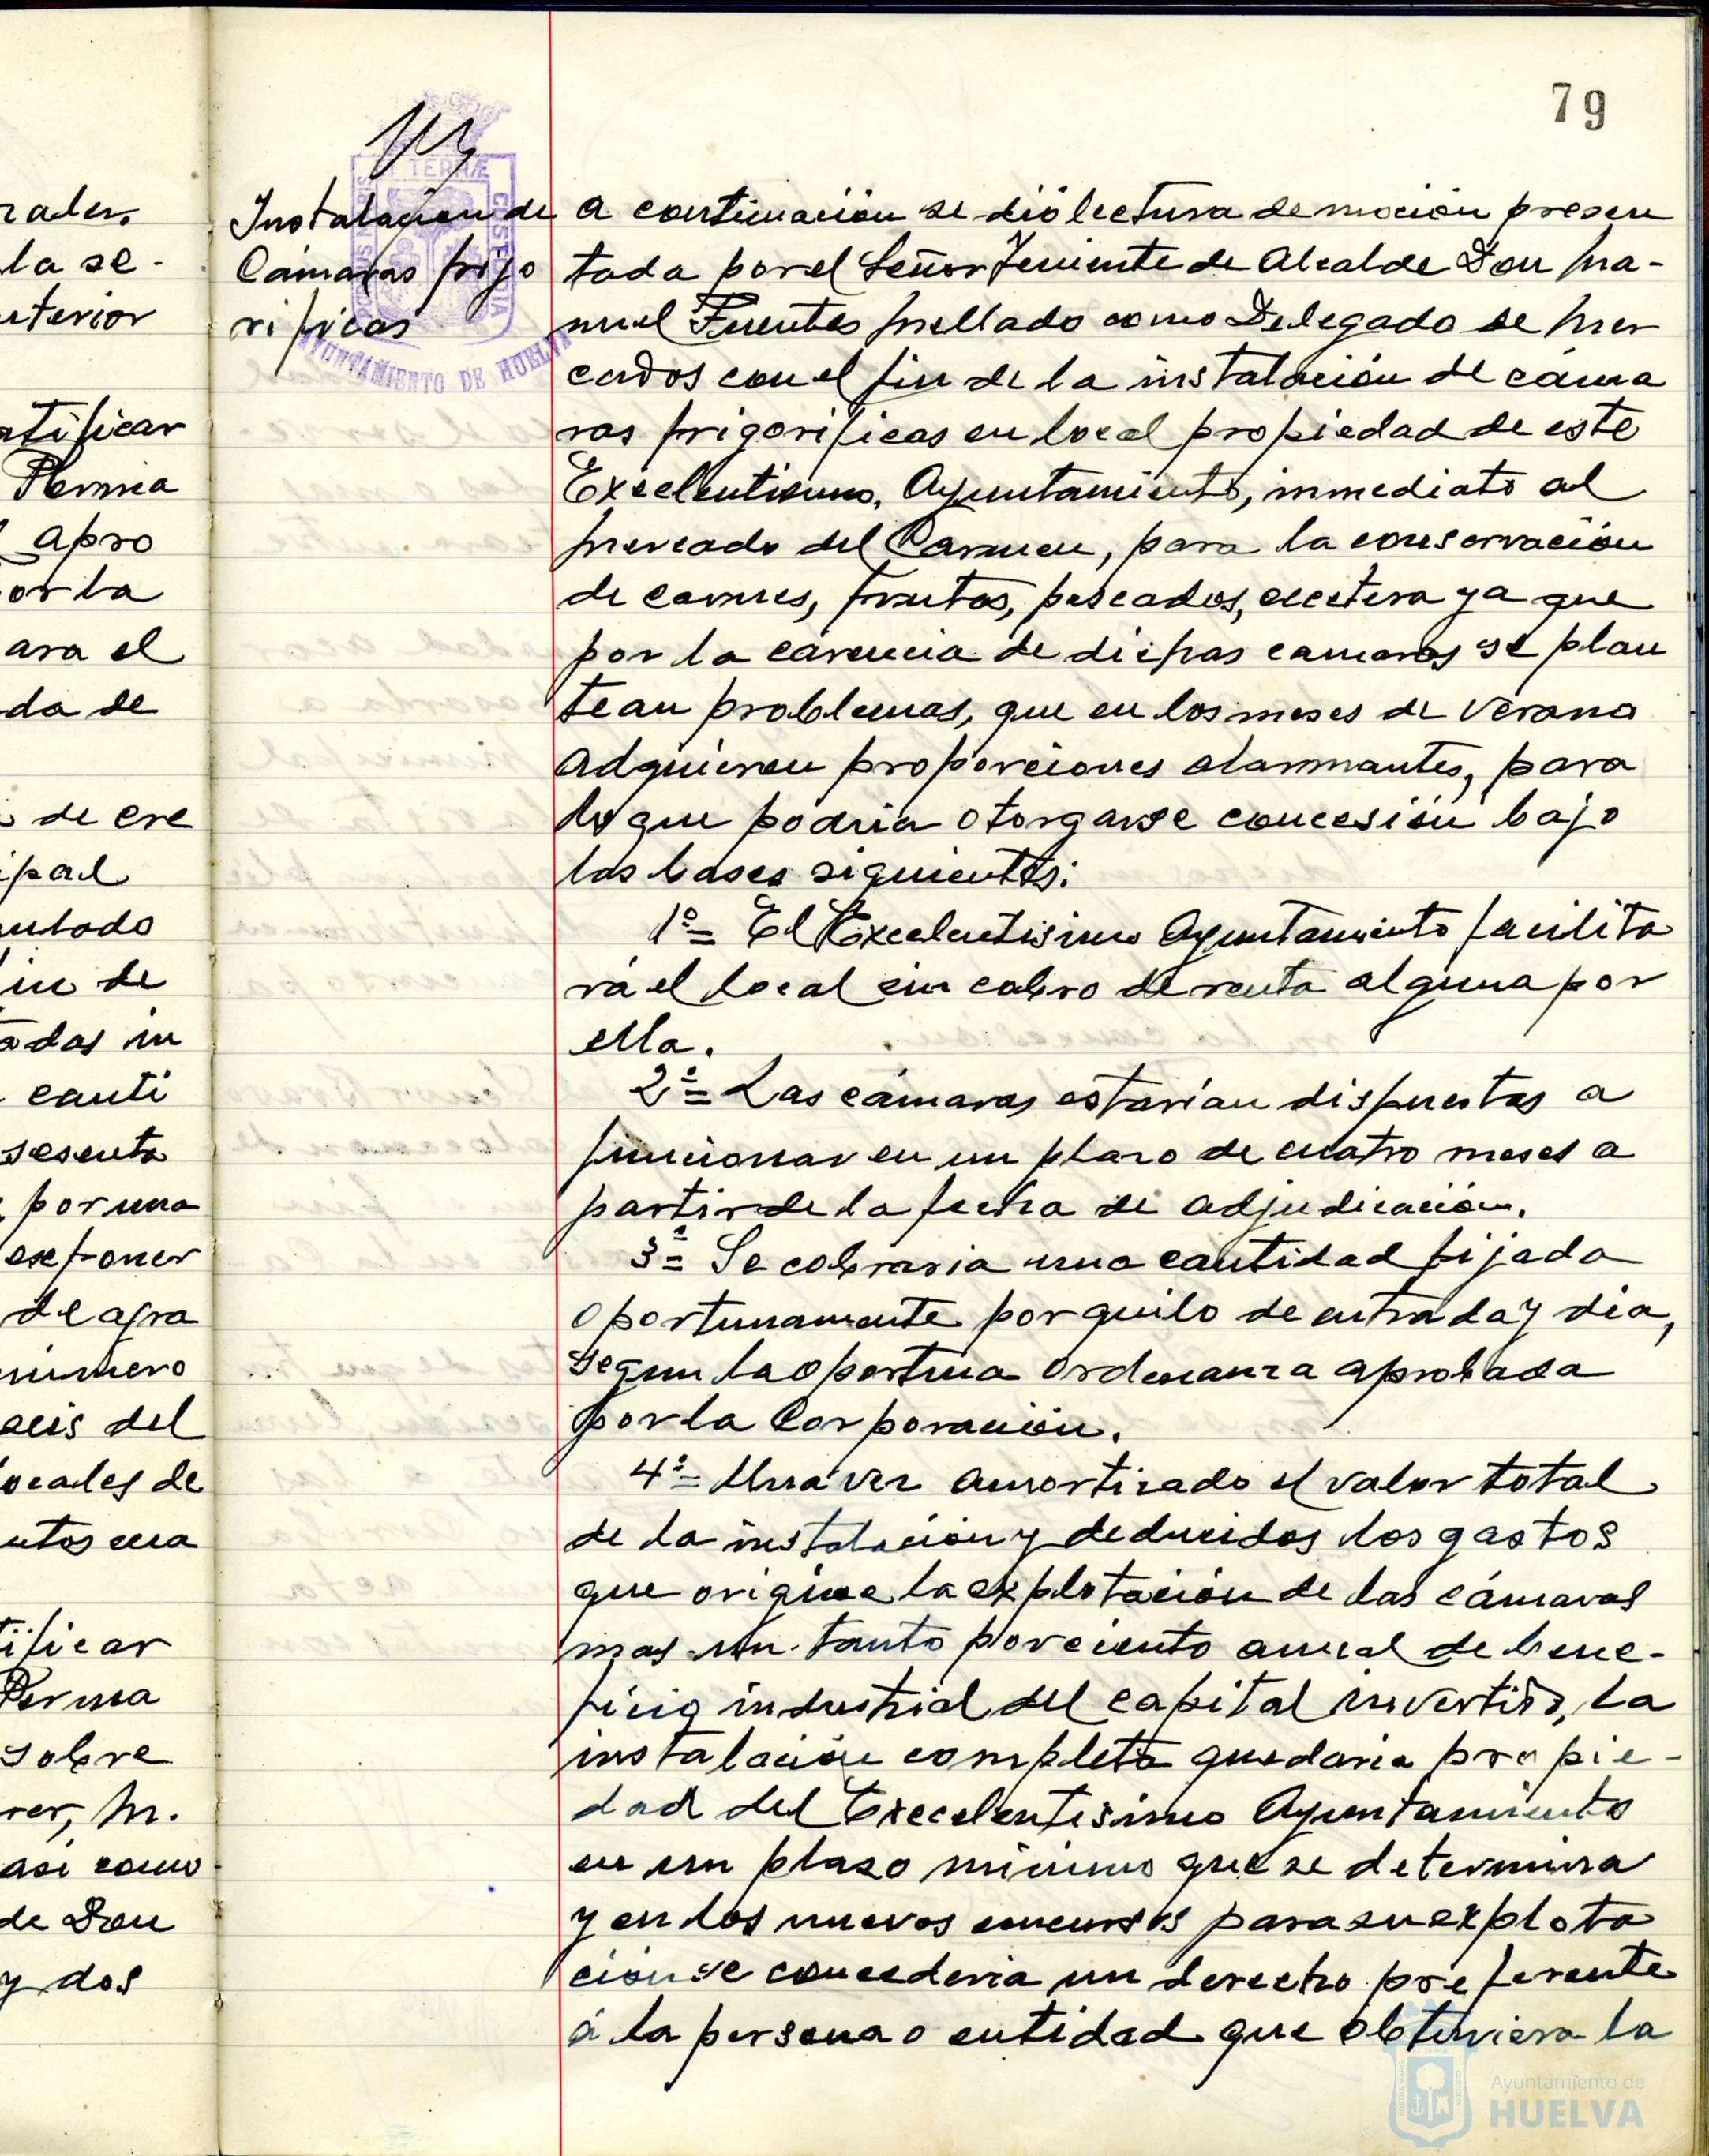 79
rales.
la se-
nterior
atificar
Perma
apro
or la
ara el
da de
de cre
ipal
in de
adas in
canti
sesenta
por una
exponer
de agra
número
seis del
locales de
tificar
Perma
sobre
rer, M.
asi como
de Don
y dos
Instalacion de
Cámaras frigo
rificas
AYUNTAMIENTO DE HUELVA
A continuación se dió lectura de moción presen
tada por el Señor Teniente de Alcalde Don Ma-
nuel Fuentes Mellado como Delegado de Mer
cados con el fin de la instalación de cáma
ras frigorificas en local propiedad de este
Excelentisimo, Ayuntamiento, inmediato al
Mercado del Carmen, para la conservación
de carnes, frutas, pescados, ecetera ya que
por la carencia de dichas camaras se plan
tean problemas, que en los meses de verano
adquieren proporciones alarmantes, para
lo que podria otorgarse concesión bajo
las bases siguientes:
1º= El Excelentisimo Ayuntamiento facilita
rá el local sin cobro de renta alguna por
ella.
2º= Las cámaras estarian dispuestas a
funcionar en un plazo de cuatro meses a
partir de la fecha de adjudicación.
3º= Se cobraria una cantidad fijada
oportunamente por quilo de entrada y dia,
segun la oportuna Ordenanza aprobada
por la Corporación.
4º= Una vez amortizado el valor total
de la instalación y deducidos los gastos
que origine la explotación de las cámaras
mas un tanto por ciento anual de bene-
ficio industrial del capital invertido, la
instalación completa quedaria propie-
dad del Excelentisimo Ayuntamiento
en un plazo minimo que se determina
y en los nuevos concursos para su explota
ción se concederia un derecho preferente
á la persona o entidad que obtuviera la
Ayuntamiento de
HUELVA